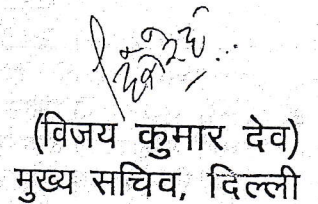 (विजय कुमार देव)
मुख्य सचिव, दिल्ली